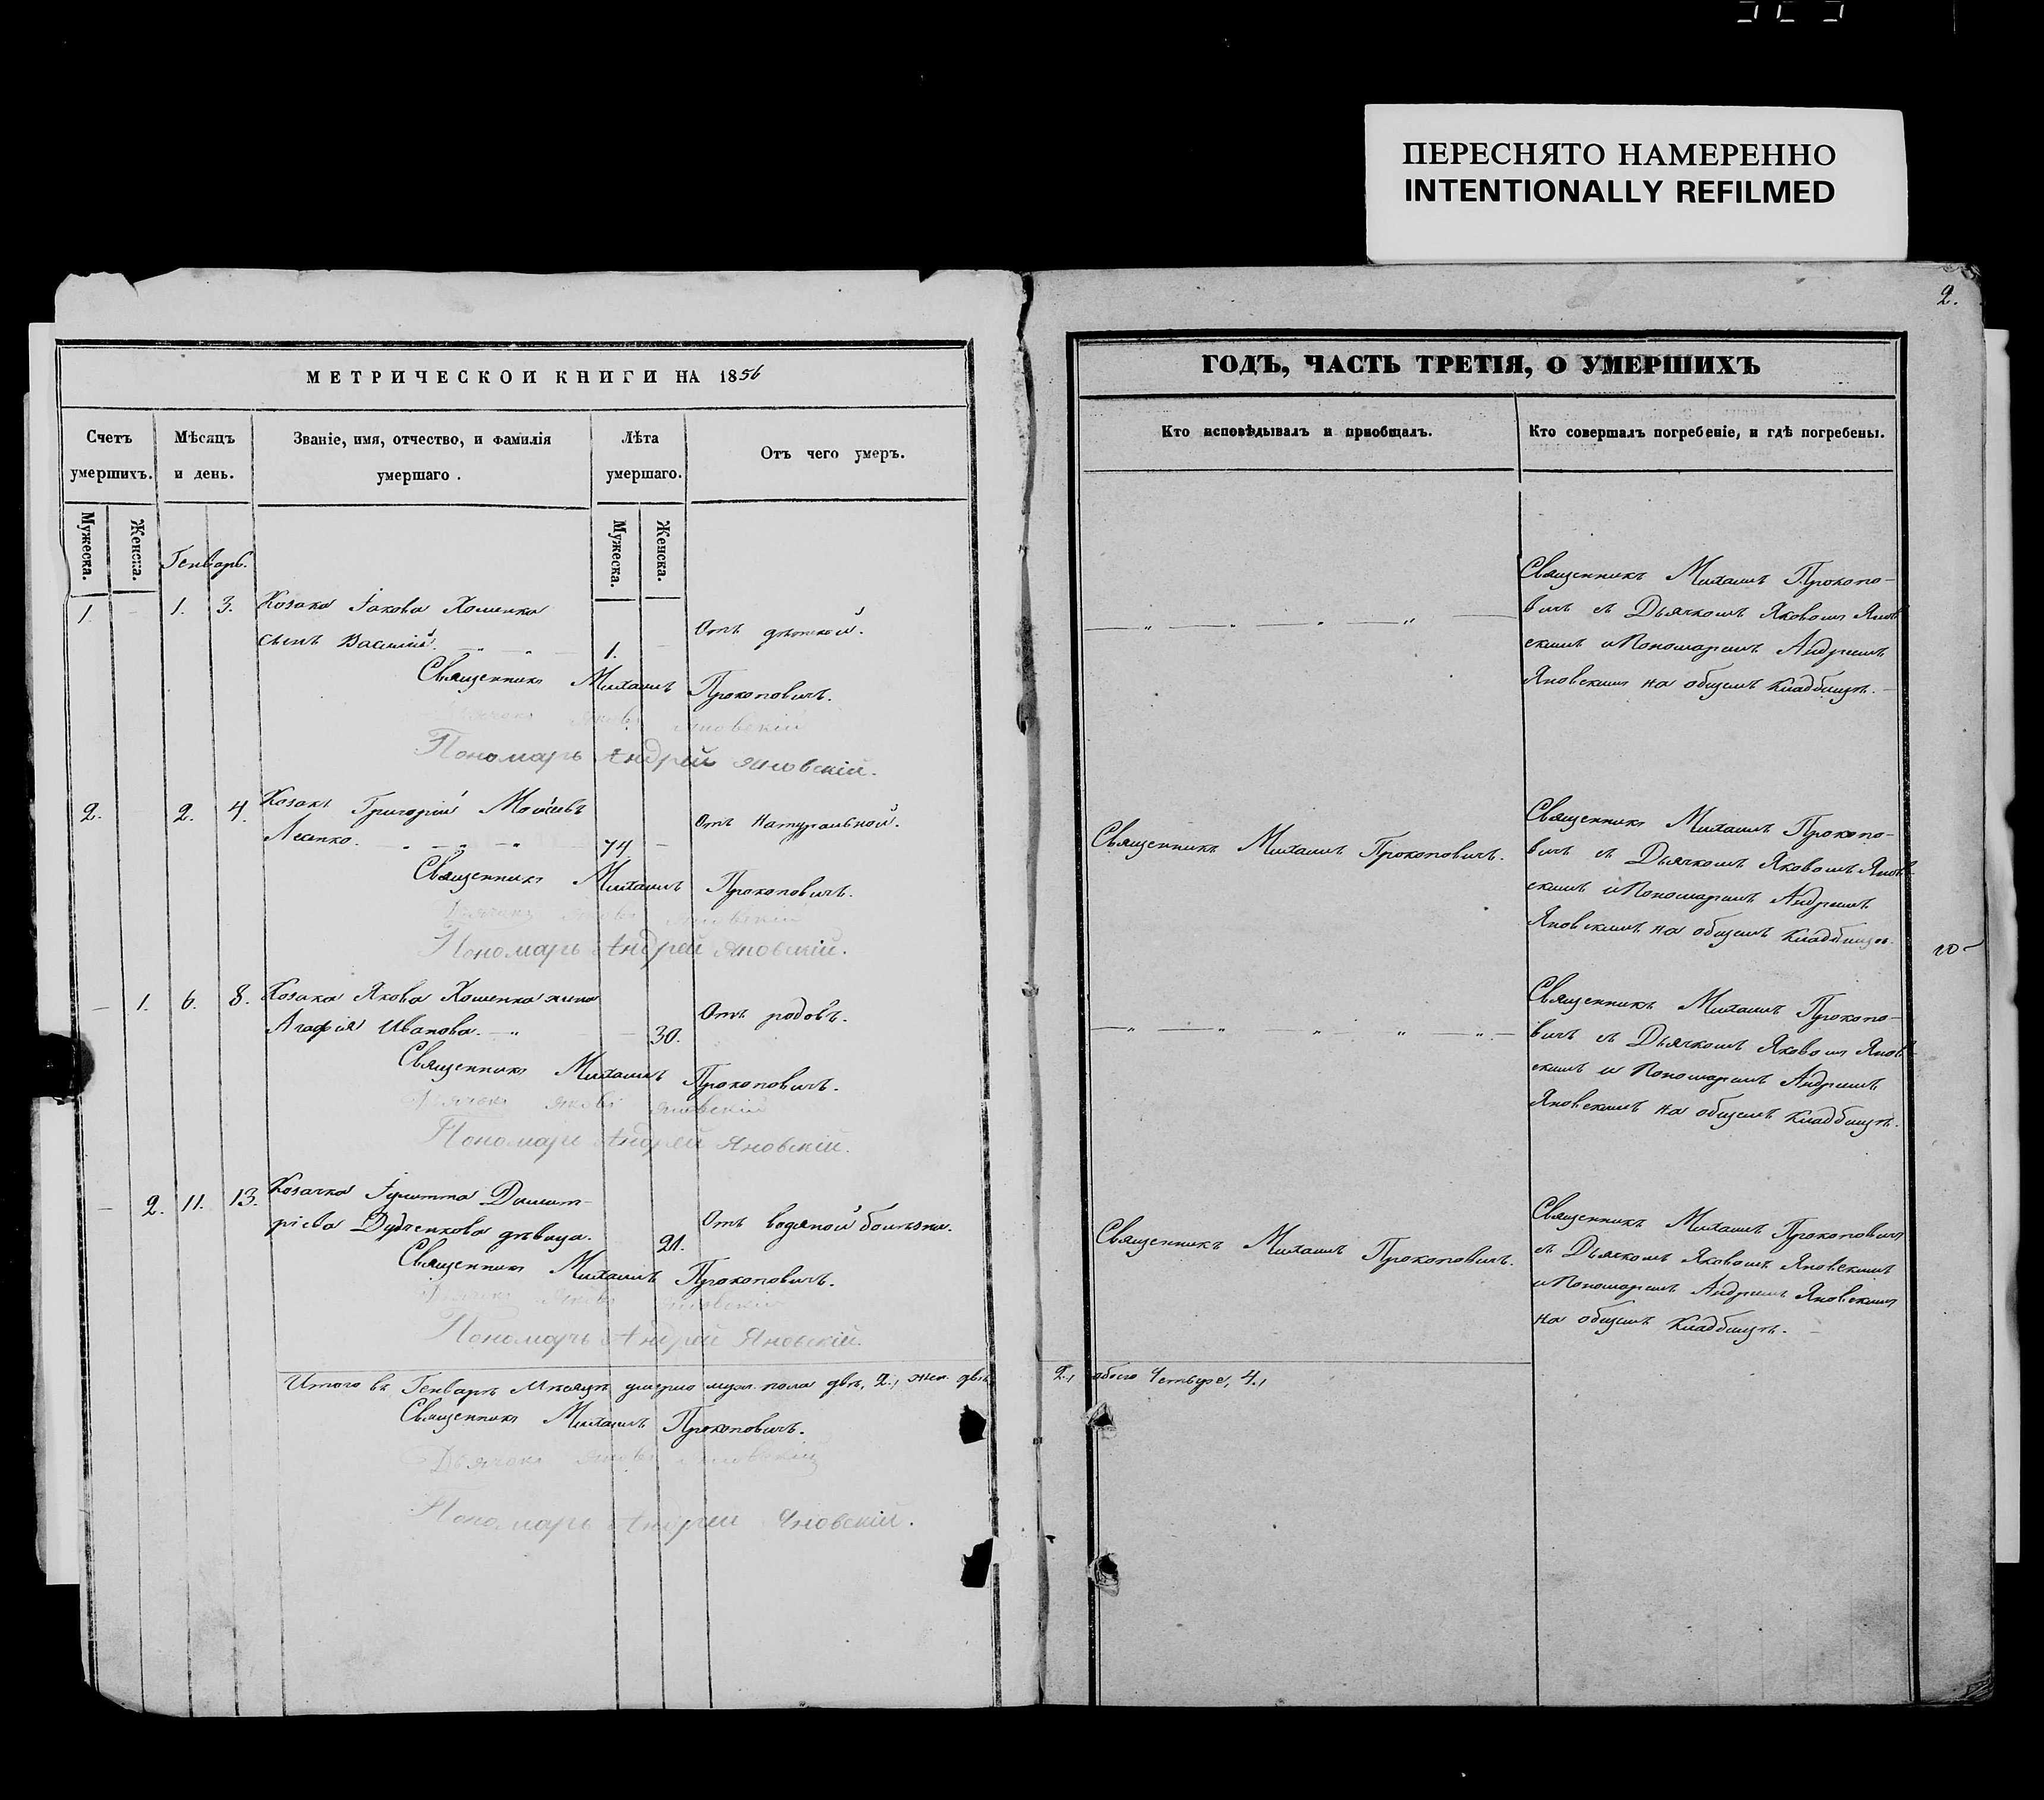 ПЕРЕСНЯТО НАМЕРЕННО
INTENTIONALLY REFILMED
2.
МЕТРИЧЕСКОЙ КНИГИ НА 1856
Счетъ умершихъ.
Мѣсяцъ и день.
Званіе, имя, отчество, и фамилія умершаго.
Лѣта умершаго.
Отъ чего умеръ.
Мужеска.
Женска.
Мужеска.
Женска.
Генварь.
1. 1. 3. Козака Іакова Хоменка
сынъ Василій. 1. Отъ дѣтской.
Священникъ Михаилъ Прокоповичъ.
Дьячокъ Яковъ Яновскій
Пономарь Андрей Яновскій.
2. 2. 4. Козакъ Григорій Моисѣевъ
Лесенко. 74. Отъ натуральной.
Священникъ Михаилъ Прокоповичъ.
Дьячокъ Яковъ Яновскій
Пономарь Андрей Яновскій.
1. 6. 8. Козака Якова Хоменка жена
Агафія Иванова. 30. Отъ родовъ.
Священникъ Михаилъ Прокоповичъ.
Дьячокъ Яковъ Яновскій
Пономарь Андрей Яновскій.
2. 11. 13. Козачка Іулитта Димит-
ріева Дудченкова дѣвица. 21. Отъ водяной болѣзни.
Священникъ Михаилъ Прокоповичъ.
Дьячокъ Яковъ Яновскій
Пономарь Андрей Яновскій.
Итого въ Генварѣ Мѣсяцѣ умерло муж. пола два, 2., жен. двѣ
Священникъ Михаилъ Прокоповичъ.
Дьячокъ Яковъ Яновскій
Пономарь Андрей Яновскій.
ГОДЪ, ЧАСТЬ ТРЕТІЯ, О УМЕРШИХЪ
Кто исповѣдывалъ и пріобщалъ.
Кто совершалъ погребеніе, и гдѣ погребены.
Священникъ Михаилъ Прокопо-
вичъ съ Дьячкомъ Яковомъ Янов
скимъ и Пономаремъ Андреемъ
Яновскимъ на общемъ кладбищѣ.
Священникъ Михаилъ Прокоповичъ.
Священникъ Михаилъ Прокопо-
вичъ съ Дьячкомъ Яковомъ Янов
скимъ и Пономаремъ Андреемъ
Яновскимъ на общемъ кладбищѣ.
Священникъ Михаилъ Прокопо-
вичъ съ Дьячкомъ Яковомъ Янов
скимъ и Пономаремъ Андреемъ
Яновскимъ на общемъ кладбищѣ.
Священникъ Михаилъ Прокоповичъ.
Священникъ Михаилъ Прокоповичъ
съ Дьячкомъ Яковомъ Яновскимъ
и Пономаремъ Андреемъ Яновскимъ
на общемъ кладбищѣ.
2., обоего Четыре, 4.,